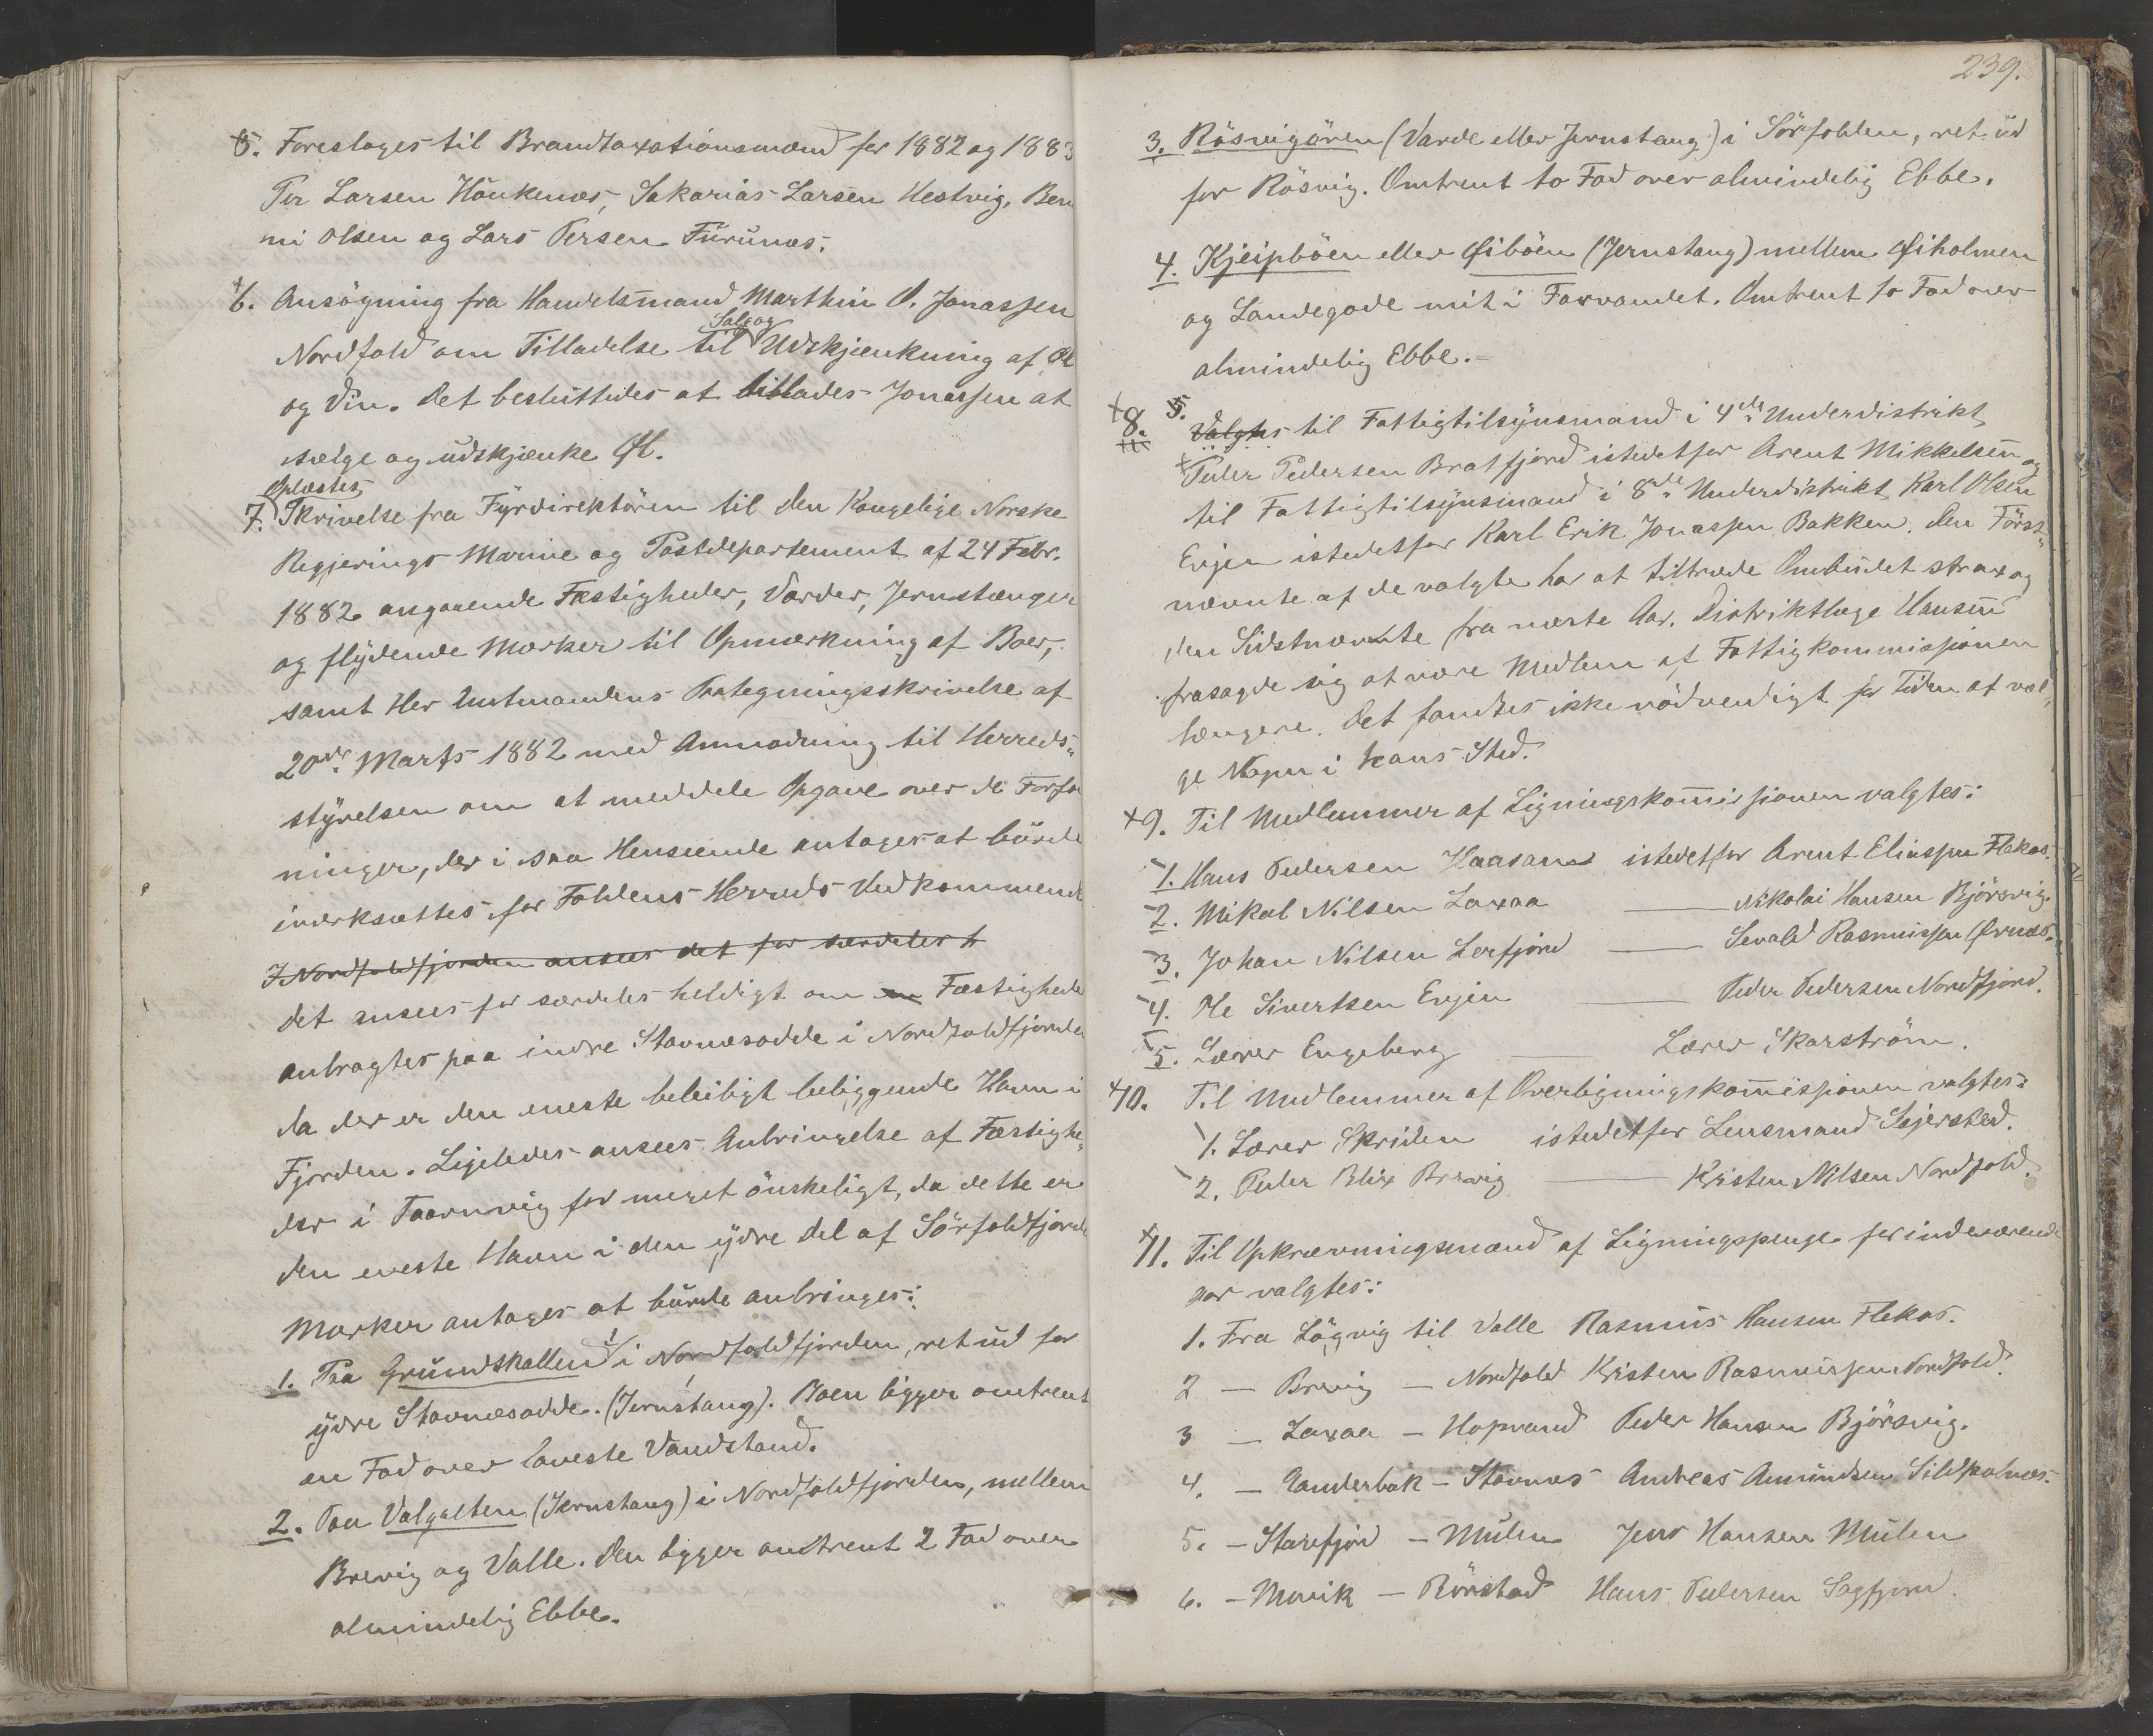 5. Foreslages til Brandtaxationsmænd for 1882 og 1883
Per Larsen Haukenæs, Sakarias Larsen Hestvig, Ben
mi Olsen og Lars Persen Furunæs.
6. Ansögning fra Handelsmand Marthin O. Jonassen
Nordfold om Tilladelse til Salg og Udskjenkning af Øl
og Vin. Det besluttedes at tillades Jonassen at
sælge og udskjænke Øl.
Oplæstes
7. Skrivelse fra Fyrdirektören til den Kongelige Norske
Regjerings Marine og Postdepartement af 24 Febr.
1882 angaaende Fæstigheder, Varder, Jernstænger
og flydende Mærker til Opmærkning af Boer,
samt Her Amtmandens Paategningsskrivelse af
20de Marts 1882 med Anmodning til Herreds-
styrelsen om at meddele Opgave over de Forfa
ninger, der i saa Henseende antages at burde
iværksættes for Foldens Herreds Vedkommende
I Nordfoldfjorden ansees det for særdeles h
det ansees for særdeles heldigt om en Fæstigheder
anbragtes paa indre Stavnæsodde i Nordfoldfjorden
da der er den eneste beleiligt beliggende Havn i
Fjorden. Ligeledes ansees Anbringelse af Fæstighe-
der i Taarnvig for meget önskeligt, da dette er
den eneste Havn i den ydre Del af Sörfoldfjorde
Mærker antages at burde anbringes:
1. Paa Grundskallen i Nordfoldfjorden, ret ud for
ydre Stavnæsodde. (Jernstang). Boen ligger omtrent
en Fad over laveste Vandstand.
2. Paa Valgalten (Jernstang) i Nordfoldfjorden, mellem
Brevig og Valle. Den ligger omtrent 2 Fad over
almindelig Ebbe.
239.
3. Rösvigören (Varde eller Jernstang) i Sörfolden, ret ud
for Rösvig. Omtrent to Fad over almindelig Ebbe.
4. Kjeipböen eller Øiböen (Jernstang) mellem Øiholmen
og Landegode mit i Farvandet. Omtrent to Fad over
almindelig Ebbe.
5.
8. Valgtes til Fattigtilsynsmand i 4de Underdistrikt
Peder Pedersen Bratfjord istedetfor Arent Mikkelsen og
til Fattigtilsynsmand i 8de Underdistrikt Karl Olsen
Evjen istedetfor Karl Erik Jonassen Bakken. Den Först-
nævnte af de valgte har at tiltræde Ombudet strax og
den Sidstnævnte fra næste Aar. Distriktlæge Hansen
frasagde sig at være Medlem af Fattigkommissionen
længere. Det fandtes ikke nödvendigt for Tiden at væl-
ge Nogen i hans Sted.
9. Til Medlemmer af Ligningskomissionen valgtes:
1. Hans Pedersen Haasand istedetfor Arent Eliassen Flekas.
2. Mikal Nilsen Laxaa — Nikolai Hansen Björsvig.
3. Johan Nilsen Lerfjord — Sevald Rasmussen Ørnæs.
4. Ole Sivertsen Evjen — Peder Pedersen Nordfjord.
5. Lærer Engeberg — Lærer Skarström.
10. Til Medlemmer af Overligningskomissionen valgtes:
1. Lærer Skriden istedetfor Lensmand Sejersted.
2. Peder Blix Brevig — Kristen Nilsen Nordfold.
11. Til Opkrævningsmænd af Ligningspenge for indeværende
aar valgtes:
1. Fra Lögvig til Valle Rasmus Hansen Flekas.
2 — Brevig — Nordfold Kristen Rasmussen Nordfold.
3 — Laxaa — Hopvand Peder Hansen Björsvig.
4. — Aanderbak — Stavnæs Andreas Amundsen Sildpolnæs.
5. — Storfjord — Mulen Jens Hansen Mulen
6. — Movik — Rörstad Hans Pedersen Sagfjord.